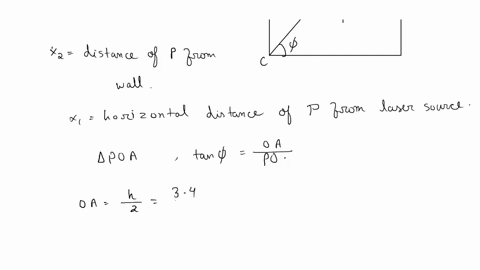 C φ
x₂ = distance of P from
wall.
x₁ = horizontal distance of P from laser source.
ΔPOA , tan φ = OA / PO.
OA = h / 2 = 3.4